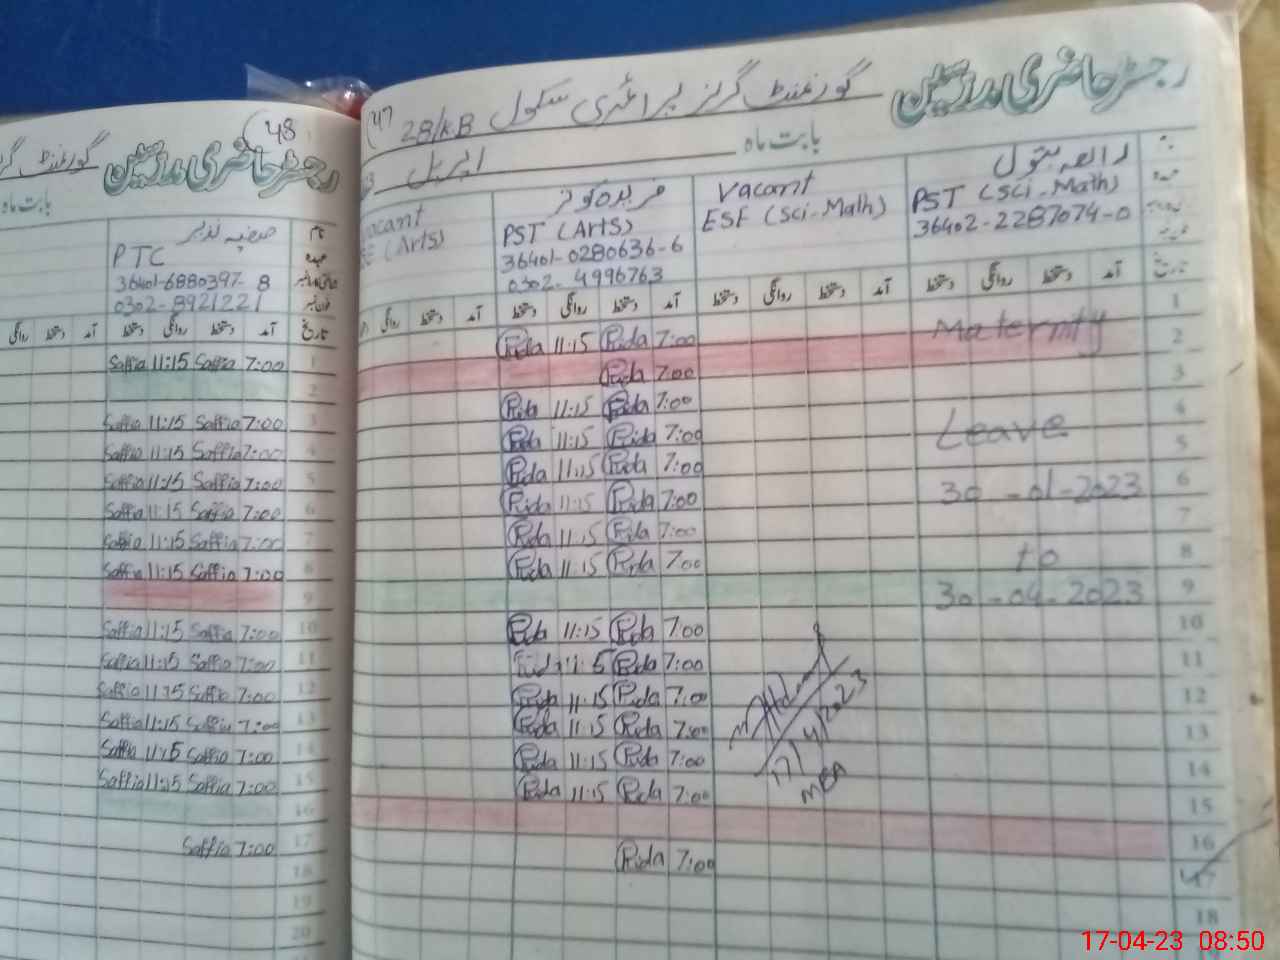 رجسٹر حاضری مدرسین
47
گورنمنٹ گرلز پرائمری سکول 28/KB
بابت ماہ اپریل
رابعہ بتول
PST (Sci-Math)
36402-2287074-0
Vacant
ESE (Sci-Math)
PST (Arts)
36401-0280636-6
0302-4996763
Vacant
(Arts)
تاریخ آمد دستخط روانگی دستخط آمد دستخط روانگی دستخط آمد دستخط روانگی دستخط آمد دستخط روانگی
1
Rida 11:15 Rida 7:00
2
Maternity
Rida 7:00
3
Rida 11:15 Rida 7:00
4
Leave
Rida 11:15 Rida 7:00
5
Rida 11:15 Rida 7:00
6
30-01-2023
Rida 11:15 Rida 7:00
7
Rida 11:15 Rida 7:00
8
to
Rida 11:15 Rida 7:00
9
30-04-2023
10
Rida 11:15 Rida 7:00
11
Rida 7:00
12
Rida 11:15 Rida 7:00
13
Rida 11:15 Rida 7:00
14
Rida 11:15 Rida 7:00
15
Rida 11:15 Rida 7:00
16
17
Rida 7:00
18
17/4/2023
MEA
48
رجسٹر حاضری مدرسین
گورنمنٹ
بابت ماہ
نام صفیہ نذیر
عہدہ PTC
36401-6880397-8
0302-8921221
تاریخ آمد دستخط روانگی دستخط آمد دستخط روانگی
1 Saffia 11:15 Saffia 7:00
2
3 Saffia 11:15 Saffia 7:00
4 Saffia 11:15 Saffia 7:00
5 Saffia 11:15 Saffia 7:00
6 Saffia 11:15 Saffia 7:00
7 Saffia 11:15 Saffia 7:00
8 Saffia 11:15 Saffia 7:00
9
10 Saffia 11:15 Saffia 7:00
11 Saffia 11:15 Saffia 7:00
12 Saffia 11:15 Saffia 7:00
13 Saffia 11:15 Saffia 7:00
14 Saffia 11:15 Saffia 7:00
15 Saffia 11:15 Saffia 7:00
16
17 Saffia 7:00
18
19
20
17-04-23 08:50